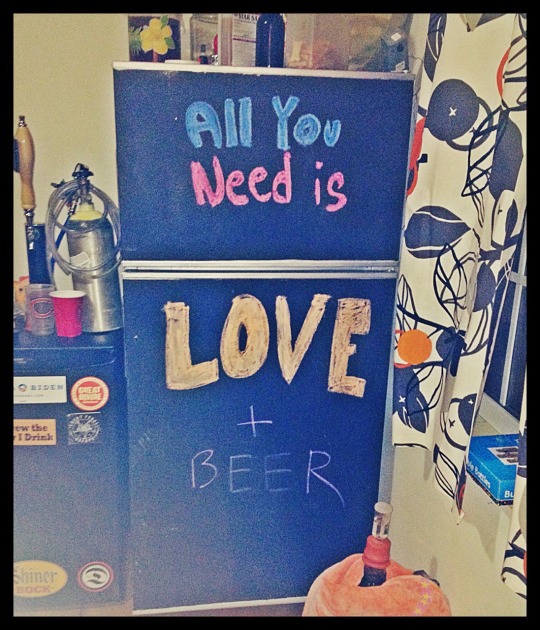 All You
Need is
LOVE
+
BEER
BIDEN
GREAT
DIVIDE
I Drink
Shiner
BOCK